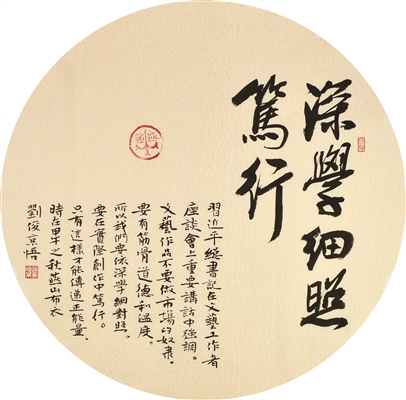 深學細照
篤行
習近平總書記在文藝工作者
座談會上重要講話中強調。
文藝作品不要做市場的奴隶。
要有筋骨道德和溫度。
所以我們要依深學細對照。
要在實際創作中篤行。
只有這樣才能傳遞正能量。
時在甲午之秋燕山布衣
劉俊京悟